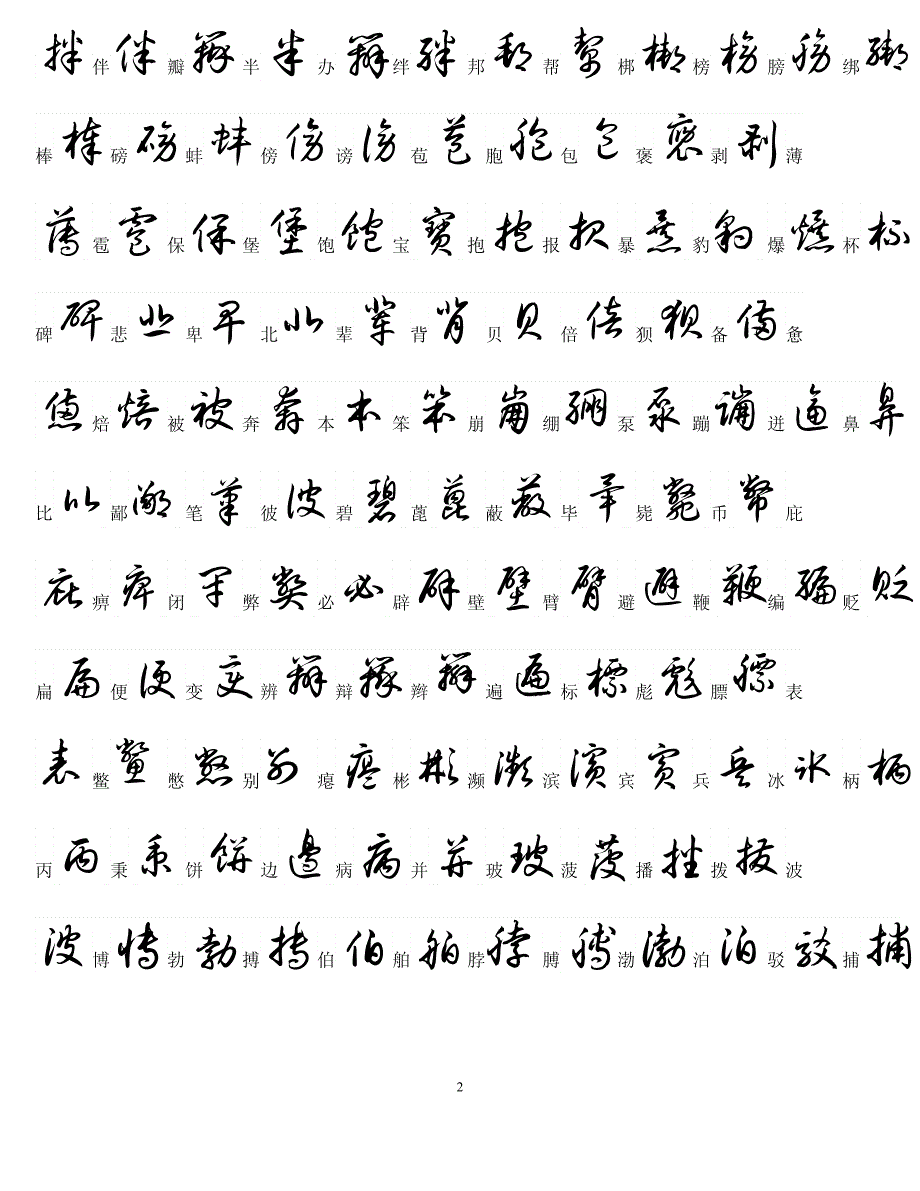 拌伴伴瓣瓣半半办办绊绊邦邦帮帮梆梆榜榜膀膀绑绑
棒棒磅磅蚌蚌傍傍谤谤苞苞胞胞包包褒褒剥剥薄
薄雹雹保保堡堡饱饱宝宝抱抱报报暴暴豹豹爆爆杯杯
碑碑悲悲卑卑北北辈辈背背贝贝倍倍狈狈备备惫
惫焙焙被被奔奔本本笨笨崩崩绷绷泵泵蹦蹦迸迸鼻鼻
比比鄙鄙笔笔彼彼碧碧蓖蓖蔽蔽毕毕毙毙币币庇
庇痹痹闭闭弊弊必必辟辟壁壁臂臂避避鞭鞭编编贬贬
扁扁便便变变辨辨辩辩辫辫遍遍标标彪彪膘膘表
表鳖鳖憋憋别别瘪瘪彬彬濒濒滨滨宾宾兵兵冰冰柄柄
丙丙秉秉饼饼边边病病并并玻玻菠菠播播拨拨波
波博博勃勃搏搏伯伯舶舶脖脖膊膊渤渤泊泊驳驳捕捕
2